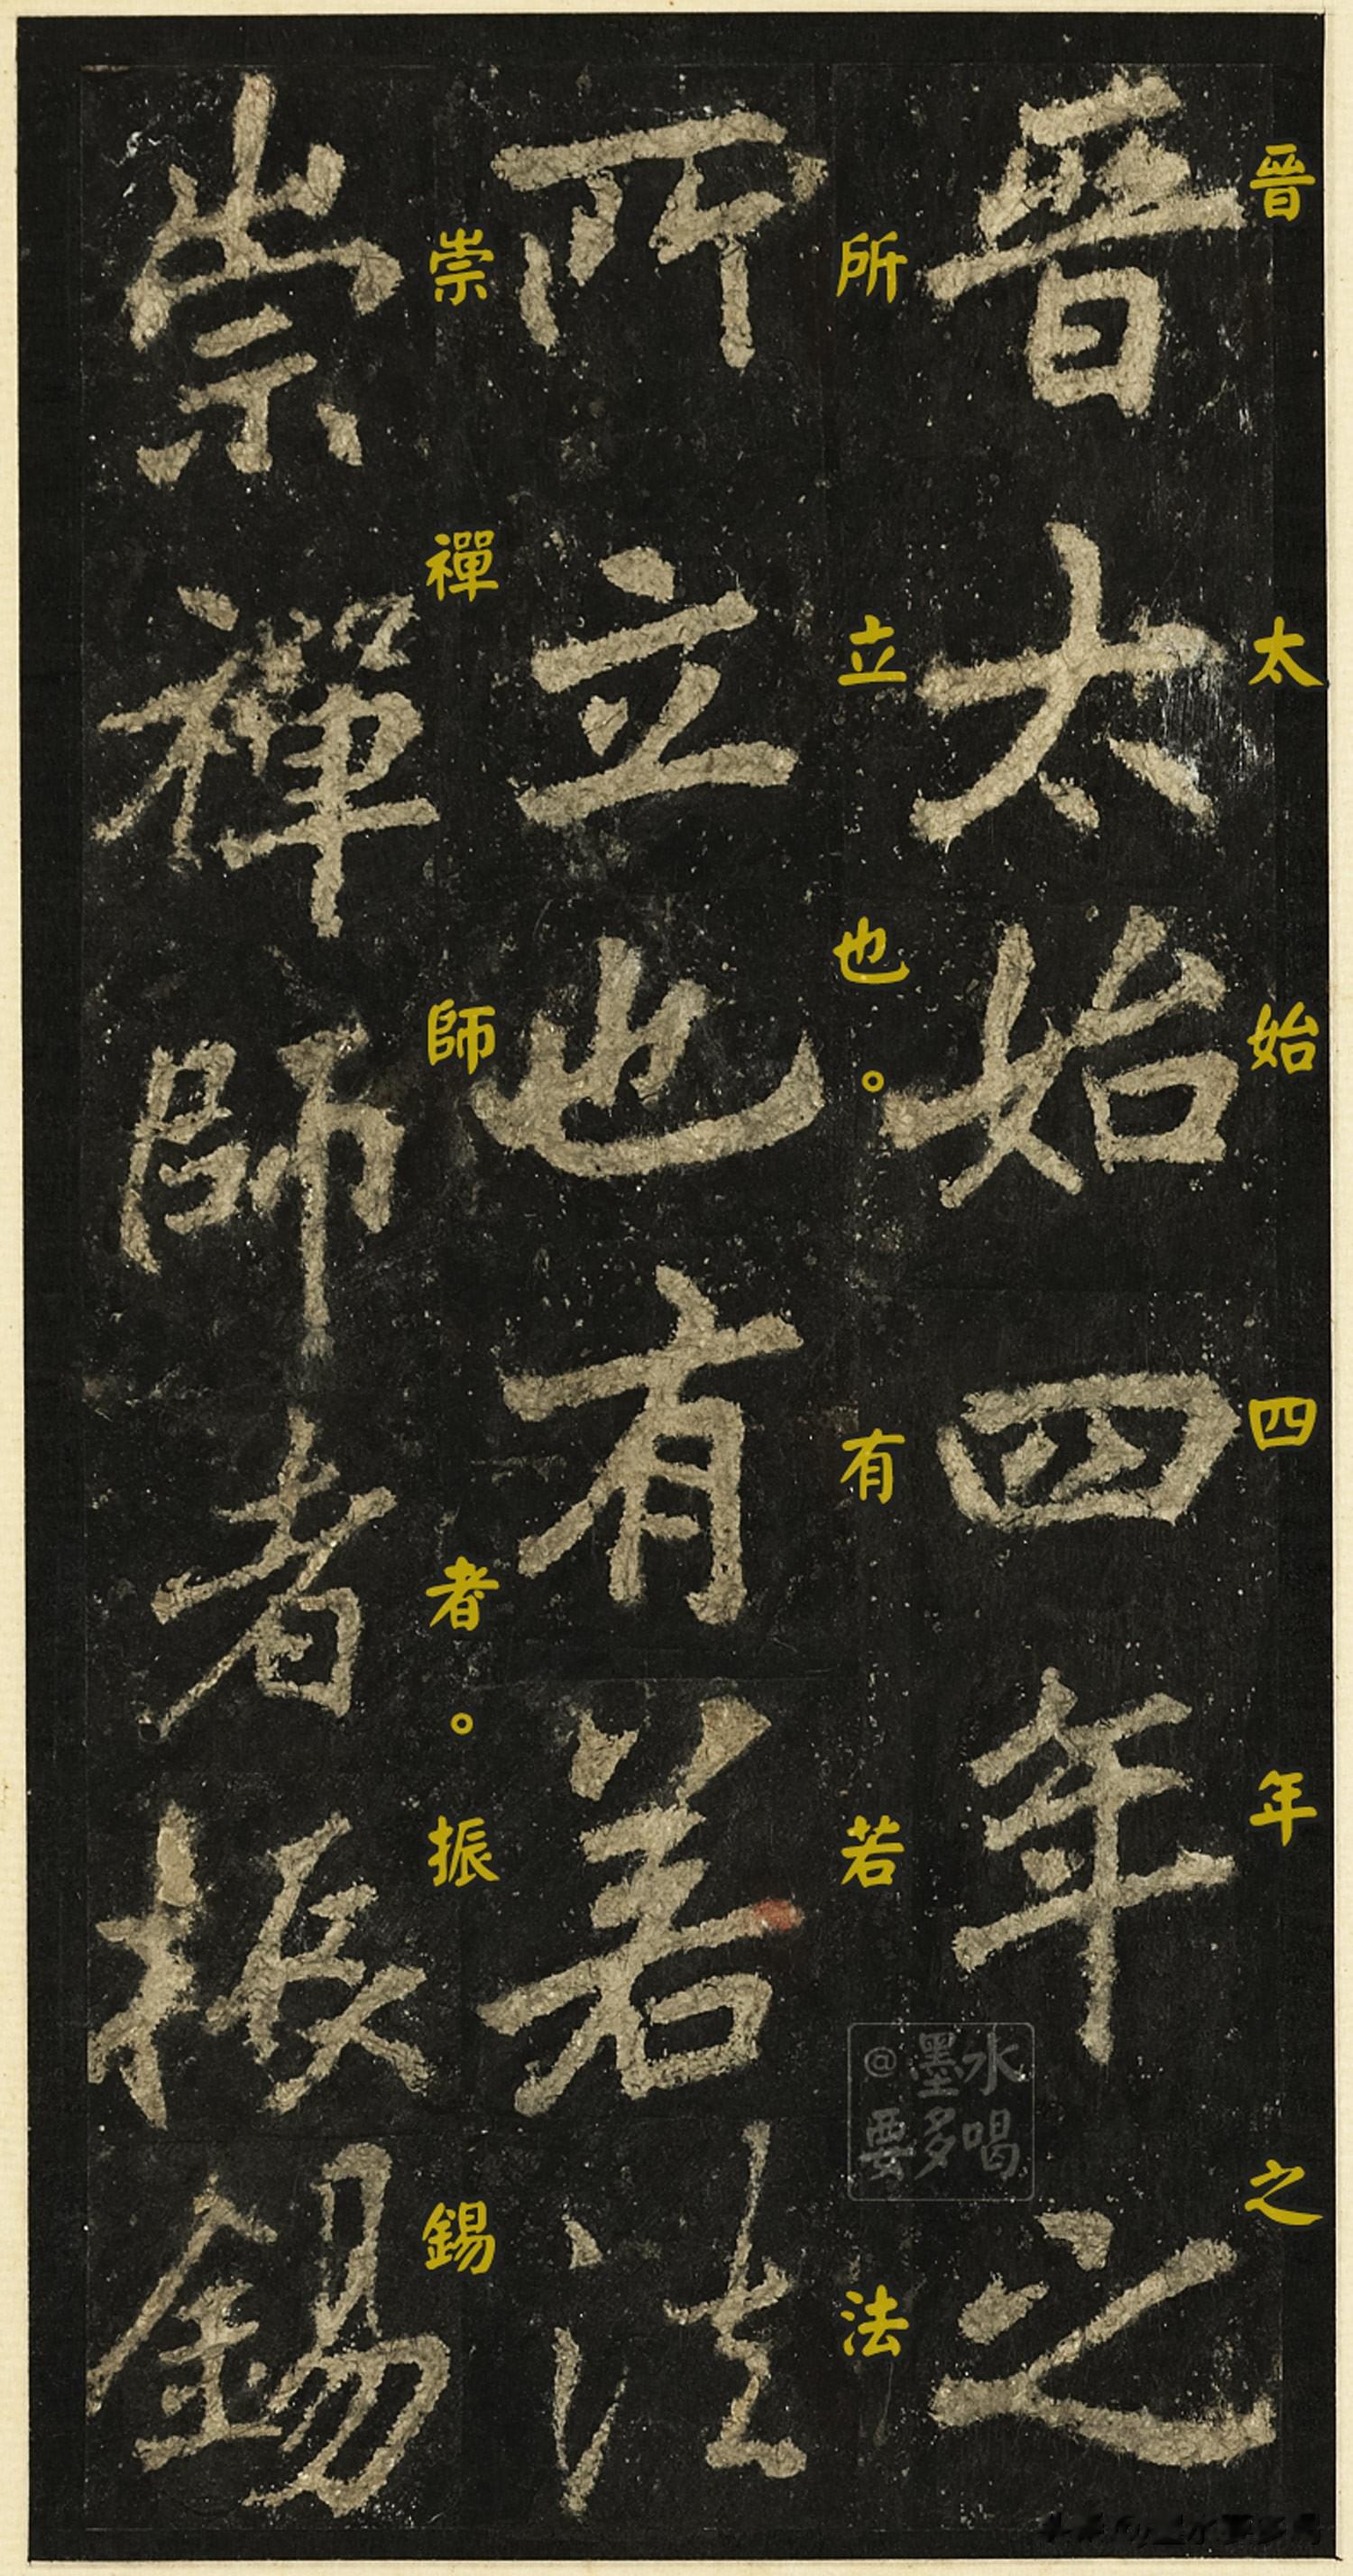 晉太始四年之
所立也。有若法
崇禪師者。振錫
晉太始四年之
所立也有若法
崇禪師者振錫
@墨水
要多喝